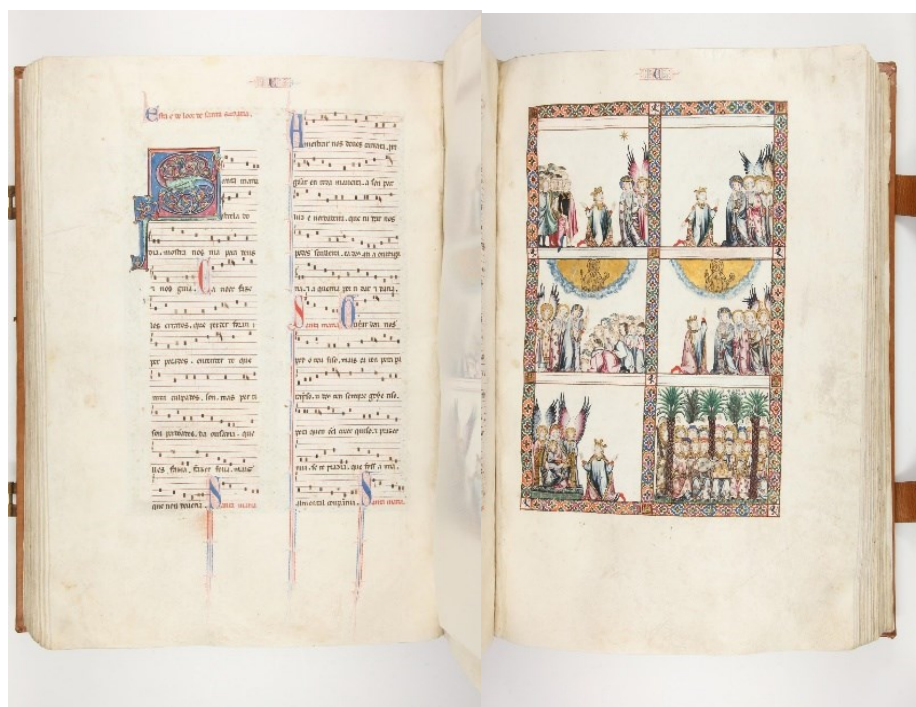 Esta e de loor de santa maria.
Santa maria
strela do
dia. mostra nos uia pera deus
e nos guia. Ca ueer faze
los errados. que perder foran
per pecados. entender de que
mui culpados. son. mas per ti
son perdõados. da ousadia. que
lles fazia. fazer folia. mais
que non deueria. Santa maria
Amostrar nos deues carreira. per
gãar en toda maneira. a sen par
luz e uerdadeira. que tu dar nos
podes senlleira. ca deus a ti outorga
ria. e a querria por ti dar e daria.
Santa maria Guiar ben nos
pod o teu siso. mais ca ren pera pa
rayso. u deus ten sempre goye riso.
pora quen en el creer quiso. e prazer
mia. se te prazia. que foss a mia
alma en tal compannia. Santa maria.